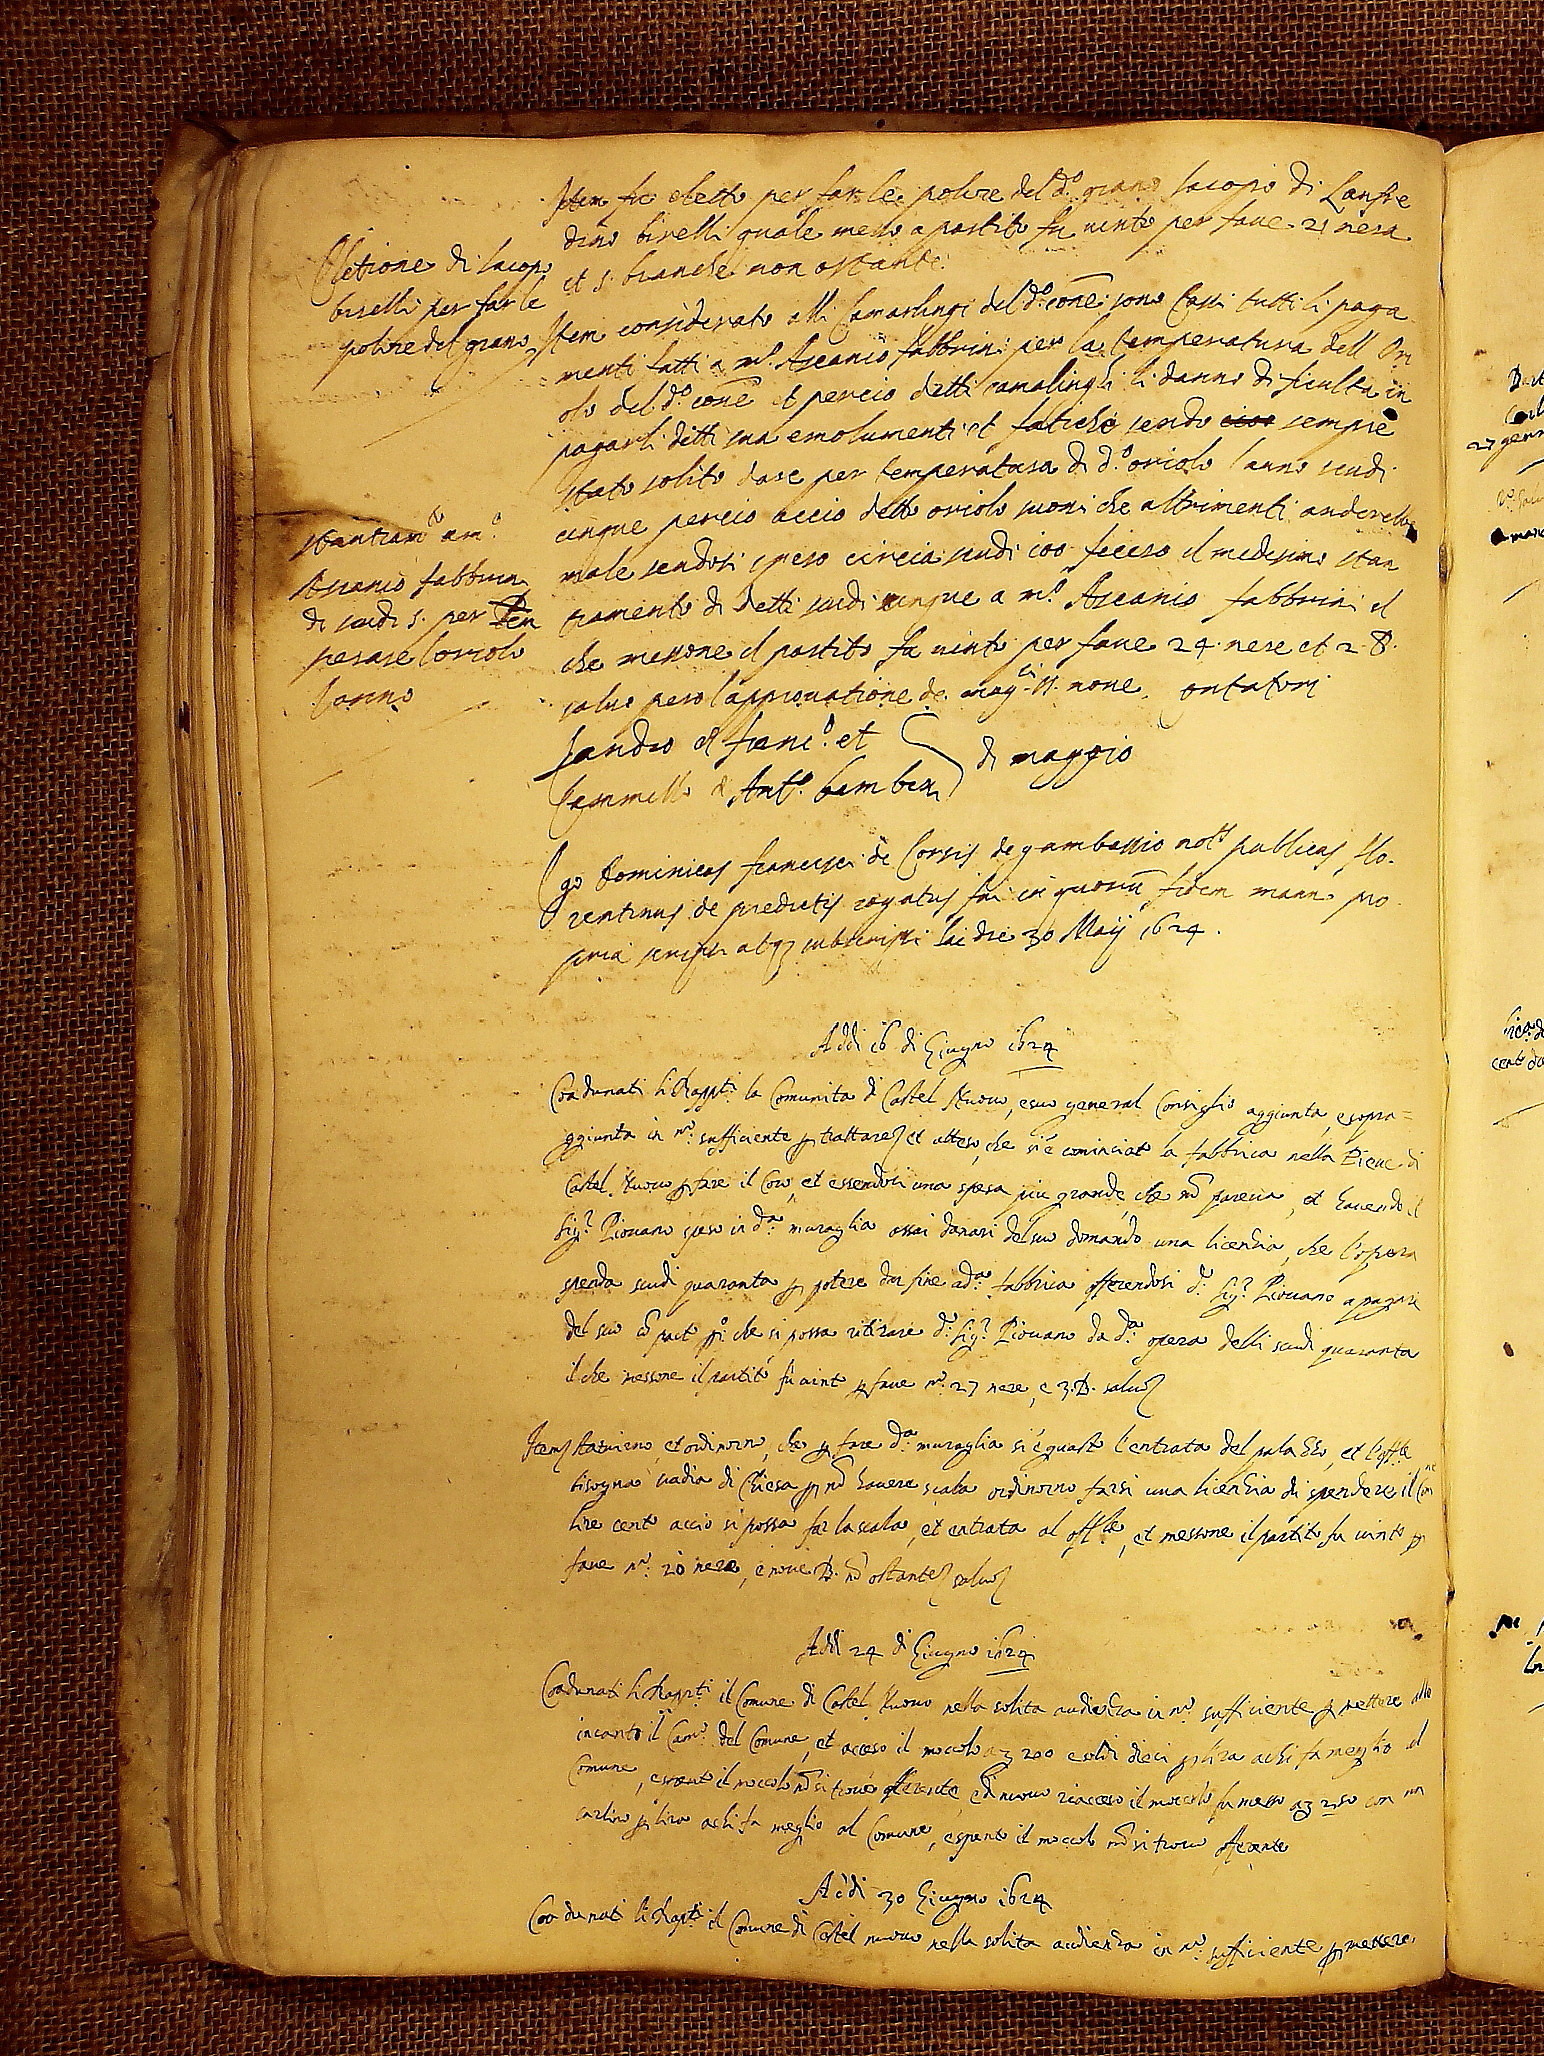 Item fu eletto per far le polize del d.º grano Iacopo di Lanfre
dino birelli quale messo a partito fu uinto per faue 21 nera
et 5. bianche non ostante.
Eletione di Iacopo
birelli per far le
polize del grano
Item considerato alli Camarlingi del d.º com̃e sono Cassi tutti li paga
menti fatti a m.º Ascanio fabbrini per la temperatura dell Ori
olo del d.º com̃e et percio detti camalinghi li danno dificulta in
pagarli ditti sua emolumenti et fatiche sendo sempre
stato solito dare per temperatura di d.º oriolo l anno scudi
cinque percio accio detto oriolo suoni che altrimenti anderebbe
male sendosi speso circia scudi 100 fecero il medesimo stan
tiamento di detti scudi cinque a m.º Ascanio fabbrini il
che messone il partito fu uinto per faue 24 nere et 2 B.
saluo pero l'approuatione de mag.ci SS. noue,
stantiam.to a m.º
Ascanio fabbrini
di scudi 5. per tem
perare l oriolo
l anno
Sandro di franc.º et
Cammillo d Ant.º bamberi
di maggio
Ego Dominicus francisci de Corsis de gambassio not.s publicus flo-
rentinus de predictis rogatus fui in quorũ fidem manu pro
pria scripsi atq; subscripsi hac die 30 Maij 1624.
Addi 16 di Giugno 1624
Coadunati li Rapp.ti la Comunita di Castel Nuouo, e suo general Consiglio aggiunta, e sopra=
ggiunta in n.º sufficiente p trattare, et atteso, che si è cominciato la fabbrica nella Pieue di
Castel Nuouo p fare il Coro, et essendoui una spesa piu grande, che nõ pareua, et hauendo il
Sig.r Piouano speso in d.a muraglia assai danari del suo domandò una licenzia, che l'opera
spenda scudi quaranta p potere dar fine a d.a fabbrica offerendosi d.º Sig.r Piouano a pagare
del suo che si possa ritirare d.º Sig.r Piouano da d.a opera delli scudi quaranta
il che messone il partito fù uinto p faue n.º 27 nere, e 3. B. saluo
Item statuirno, et ordinorno, che p fare d.a muraglia si è guasto l'entrata del palazzo, et l'offle
bisogna uadia di Chiesa p nõ hauere scala ordinorno farsi una licenzia di spendere il Com.ne
lire cento accio si possa far la scala, et entrata al offle, et messone il partito fu uinto p
faue n.º 20 nere, e noue B. nõ ostante saluo
Addi 24 di Giugno 1624
Coadunati li Rapp.ti il Comune di Castel Nuouo nella solita audienza in n.º sufficiente p mettere allo
incanto il Cam.º del Comune, et acceso il moccolo a 200 e soldi dieci p lira a chi fa meglio il
Comune, e spento il moccolo nõ si trouò offerente, e di nuouo riacceso il moccolo fu messo a 250 con un
carlino p lira a chi fa meglio al Comune, e spento il moccolo nõ si trouo offerente
Addi 30 Giugno 1624
Coadunati li Rapp.ti il Comune di Castel nuouo nella solita audienza in n.º sufficiente p mettere